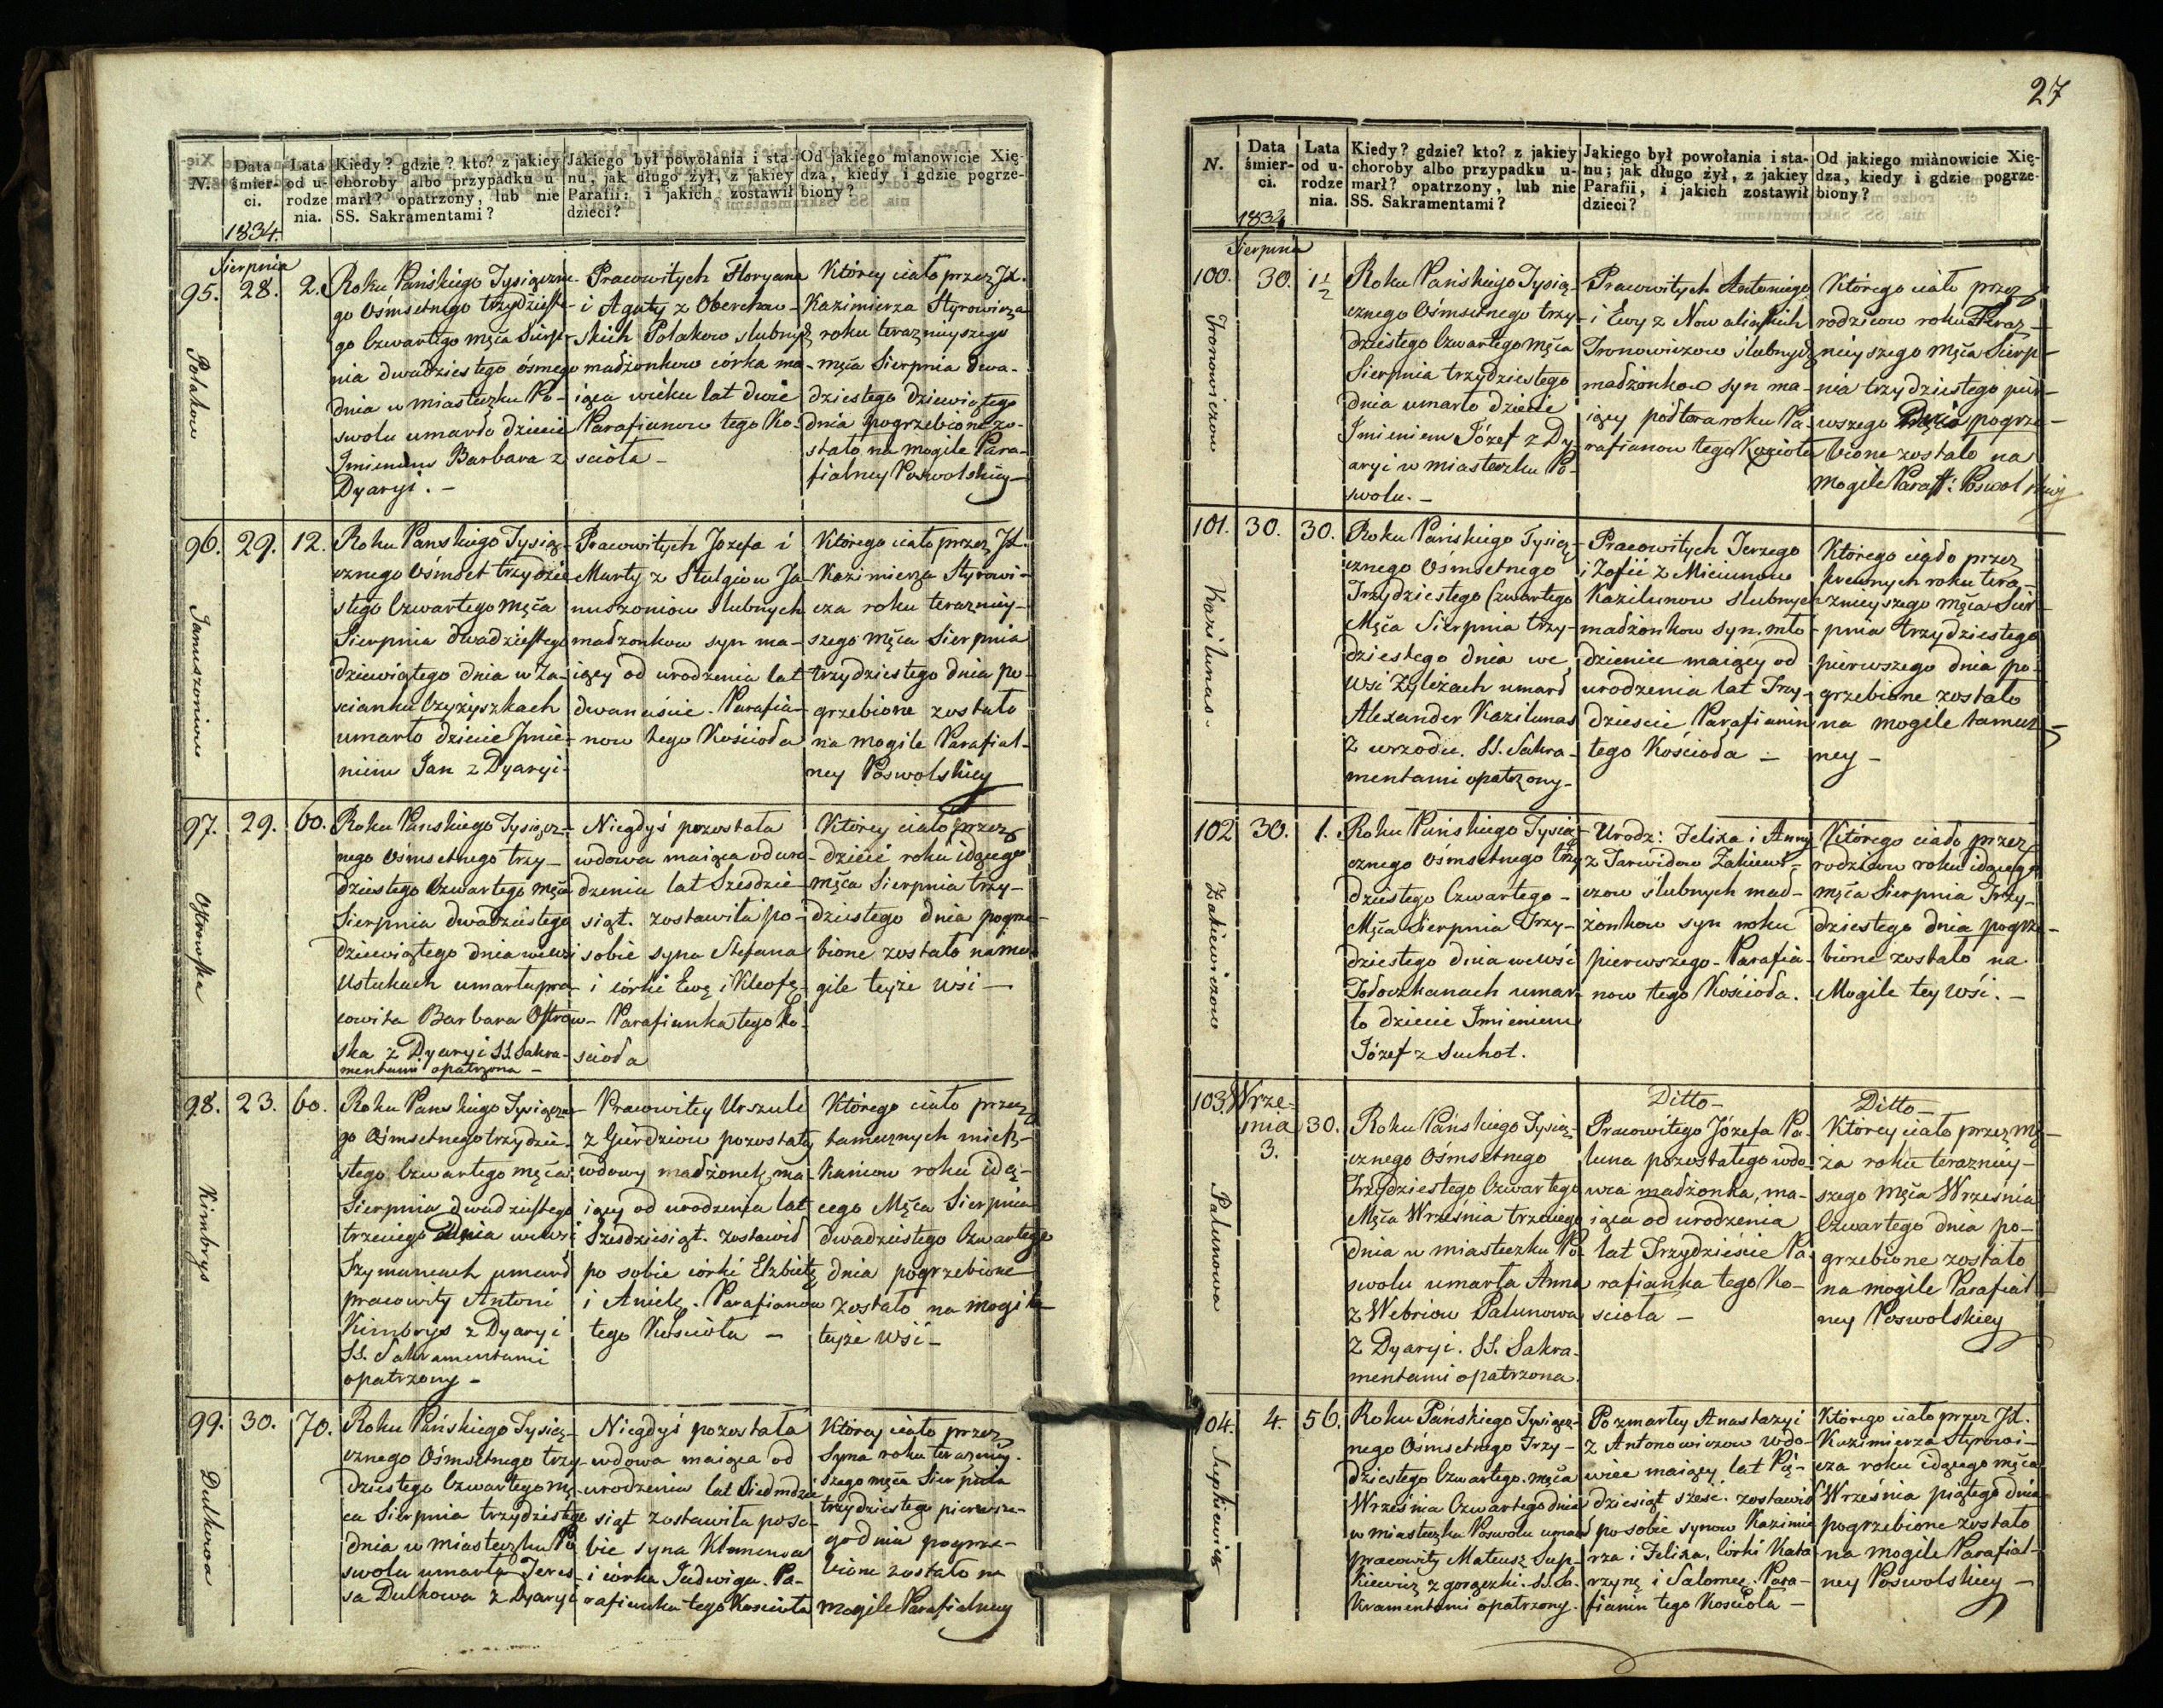 27
N.
Data śmier- ci.
1834.
Lata od u- rodze nia.
Kiedy? gdzie? kto? z jakiey
choroby albo przypadku u-
marł? opatrzony, lub nie
SS. Sakramentami?
Jakiego był powołania i sta-
nu, jak długo żył, z jakiey
Parafii; i jakich zostawił
dzieci?
Od jakiego mianowicie Xię-
dza, kiedy i gdzie pogrze-
biony?
Sierpnia
95. 28. 2.
Polakow
Roku Pańskiego Tysiączne-
go Ośmsetnego trzydzieste-
go Czwartego Męca Sierp-
nia dwadziestego ósmego
dnia w miasteczku Po-
swolu umarło dziecie
Imieniem Barbara z
Dyaryi. –
Pracowitych Floryana
i Agaty z
skich Polakow slubnych
madżonkow córka ma-
iąca wieku lat dwie
Parafianow tego Ko-
scioła –
Którey ciało przez Jx.
Kazimierza Styrowicza
roku teraznieyszego
męca Sierpnia dwa-
dziestego dziewiątego
dnia pogrzebione zo-
stało na mogile Para-
fialney Poswolskiey
96. 29. 12.
Januszoniow
Roku Panskiego Tysiąc-
cznego Ośmset trzydzie
stego Czwartego Męca
Sierpnia dwadziestego
dziewiątego dnia w Za-
scianku Czyżyszkach
umarło dziecie Imie-
niem Jan z Dyaryi-
Pracowitych Jozefa i
Marty z Stulgiow Ja-
nuszoniow slubnych
madzonkow syn ma-
iący od urodzenia lat
dwanaście. Parafia-
now tego Kościoła
Którego ciało przez Jx.
Kazimierza Styrowi-
cza roku terazniey-
szego męca Sierpnia
trzydziestego dnia po-
grzebione zostało
na mogile Parafial-
ney Poswolskiey
97. 29. 60.
Ostrowska
Roku Panskiego Tysiącz-
nego Ośmsetnego trzy-
dziestego Czwartego męca
Sierpnia dwadziestego
dziewiątego dnia we wsi
Ustukach umarła pra-
cowita Barbara Ostrow-
ska z Dyaryi SS. Sakra-
mentami opatrzona –
Niegdyś pozostała
wdowa maiąca od uro-
dzenia lat Szesdzie-
siąt. zostawiła po
sobie syna Stefana
i córki Ewę i Kleofę-
Parafianka tego Ko-
scioła
Którey ciało przez
dzieci roku idącego
męca Sierpnia trzy-
dziestego dnia pogrze-
bione zostało na mo-
gile teyże wsi –
98. 23. 60.
Kimbrys
Roku Panskiego Tysiączne-
go Ośmsetnego trzydzie-
stego Czwartego męca
Sierpnia dwadziestego
trzeciego dnia we wsi
Szymancach umarł
pracowity Antoni
Kimbrys z Dyaryi
SS. Sakramentami
opatrzony –
Pracowitey Urszule
z Gierdziow pozostały
wdowy madżonek, ma-
iący od urodzenia lat
Szesdziesiąt. zostawił
po sobie córki Elzbietę
i Anielę. Parafianow
tego Kościoła –
Którego ciało przez
tamecznych miesz-
kańcow roku idą-
cego Męca Sierpnia
dwadziestego Czwartego
dnia pogrzebione
zostało na mogile
teyże wsi –
99. 30. 70.
Dulkowa
Roku Pańskiego Tysią-
cznego Ośmsetnego trzy-
dziestego Czwartego mę-
ca Sierpnia trzydziestego
dnia w miasteczku Po
swolu umarła Teres
sa Dulkowa z Dyaryi
Niegdyś pozostała
wdowa maiąca od
urodzenia lat Siedmdzie
siąt zostawiła po so-
bie syna
i córka Jadwiga. Pa-
rafianka tego Kościoła
Którey ciało przez
Syna roku terazniey-
szego męca Sierpnia
trzydziestego pierwsze-
go dnia pogrze-
bione zostało na
mogile Parafialney
N.
Data śmier- ci.
1834
Lata od u- rodze nia.
Kiedy? gdzie? kto? z jakiey
choroby albo przypadku u-
marł? opatrzony, lub nie
SS. Sakramentami?
Jakiego był powołania i sta-
nu; jak długo żył, z jakiey
Parafii, i jakich zostawił
dzieci?
Od jakiego mianowicie Xię-
dza, kiedy i gdzie pogrze-
biony?
Sierpnia
100. 30. 1½
Tronowiczow
Roku Pańskiego Tysią-
cznego Ośmsetnego trzy-
dziestego Czwartego Męca
Sierpnia trzydziestego
dnia umarło dziecie
Imieniem Józef z Dy-
aryi w miasteczku Po-
swolu. –
Pracowitych Antoniego
i Ewy z Nowalińskich
Tronowiczow slubnych
madżonkow syn ma-
iący półtora roku Pa-
rafianow tego Kościoła
Którego ciało przez
rodzicow roku Teraz-
nieyszego Męca Sierp-
nia trzydziestego pier-
wszego Dnia pogrze-
bione zostało na
mogile Paraff: Poswolskiey
101. 30. 30.
Kazilunas.
Roku Pańskiego Tysią-
cznego Ośmsetnego
Trzydziestego Czwartego
Męca Sierpnia trzy-
dziestego dnia we
Wsi Zyleżach umarł
Alexander Kazilunas
z wrzodu. SS. Sakra-
mentami opatrzony-
Pracowitych Jerzego
i Zofii z Miciunow
Kazilunow slubnych
madżonkow syn. mło
dzieniec maiący od
urodzenia lat Trzy-
dzieście Parafianin
tego Kościoła –
Którego ciało przez
krewnych roku tera-
znieyszego męca Sier-
pnia trzydziestego
pierwszego dnia po-
grzebione zostało
na mogile tamecz-
ney –
102 30. 1.
Zakiewiczow
Roku Pańskiego Tysią
cznego Ośmsetnego trzy
dziestego Czwartego –
Męca Sierpnia Trzy-
dziestego dnia we wsi
Todoczkanach umar-
ło dziecie Imieniem
Józef z Suchot.
Urodz: Felixa i Anny
z Tarwidow Zakiewi-
czow slubnych mad-
żonkow syn roku
pierwszego – Parafia-
now tego Kościoła.
Którego ciało przez
rodzicow roku idącego
męca Sierpnia Trzy-
dziestego dnia pogrze-
bione zostało na
Mogile tey Wsi. –
103. Wrze-
śnia 30.
3.
Palunowa
Roku Pańskiego Tysią-
cznego Ośmsetnego
Trzydziestego Czwartego
Męca Września trzeciego
dnia w miasteczku Po-
swolu umarła Anna
z Webriow Palunowa
z Dyaryi. SS. Sakra-
mentami opatrzona
Ditto –
Pracowitego Józefa Pa-
luna pozostałego wdo-
wca madżonka, ma-
iąca od urodzenia
lat Trzydzieście Pa-
rafianka tego Ko-
scioła –
Ditto –
Którey ciało przez Mę-
ża roku terazniey-
szego Męca Września
Czwartego dnia po-
grzebione zostało
na mogile Parafial-
ney Poswolskiey
104. 4. 56.
Supkiewicz
Roku Pańskiego Tysiącz-
nego Ośmsetnego Trzy-
dziestego Czwartego męca
Września Czwartego dnia
w miasteczku Poswolu umarł
pracowity Mateusz Sup-
kiewicz z gorączki. SS. Sa-
kramentami opatrzony.
Po zmarłey Anastazyi
z Antonowiczow wdo-
wiec maiący lat Pię-
dziesiąt sześć. zostawił
po sobie synow Kazimie
rza i Felixa, córki Kata
rzynę i Salomeę. Para-
fianin tego Kościoła –
Którego ciało przez Jx.
Kazimierza Styrowi-
cza roku idącego męca
Września piątego dnia
pogrzebione zostało
na mogile Parafial-
ney Poswolskiey –